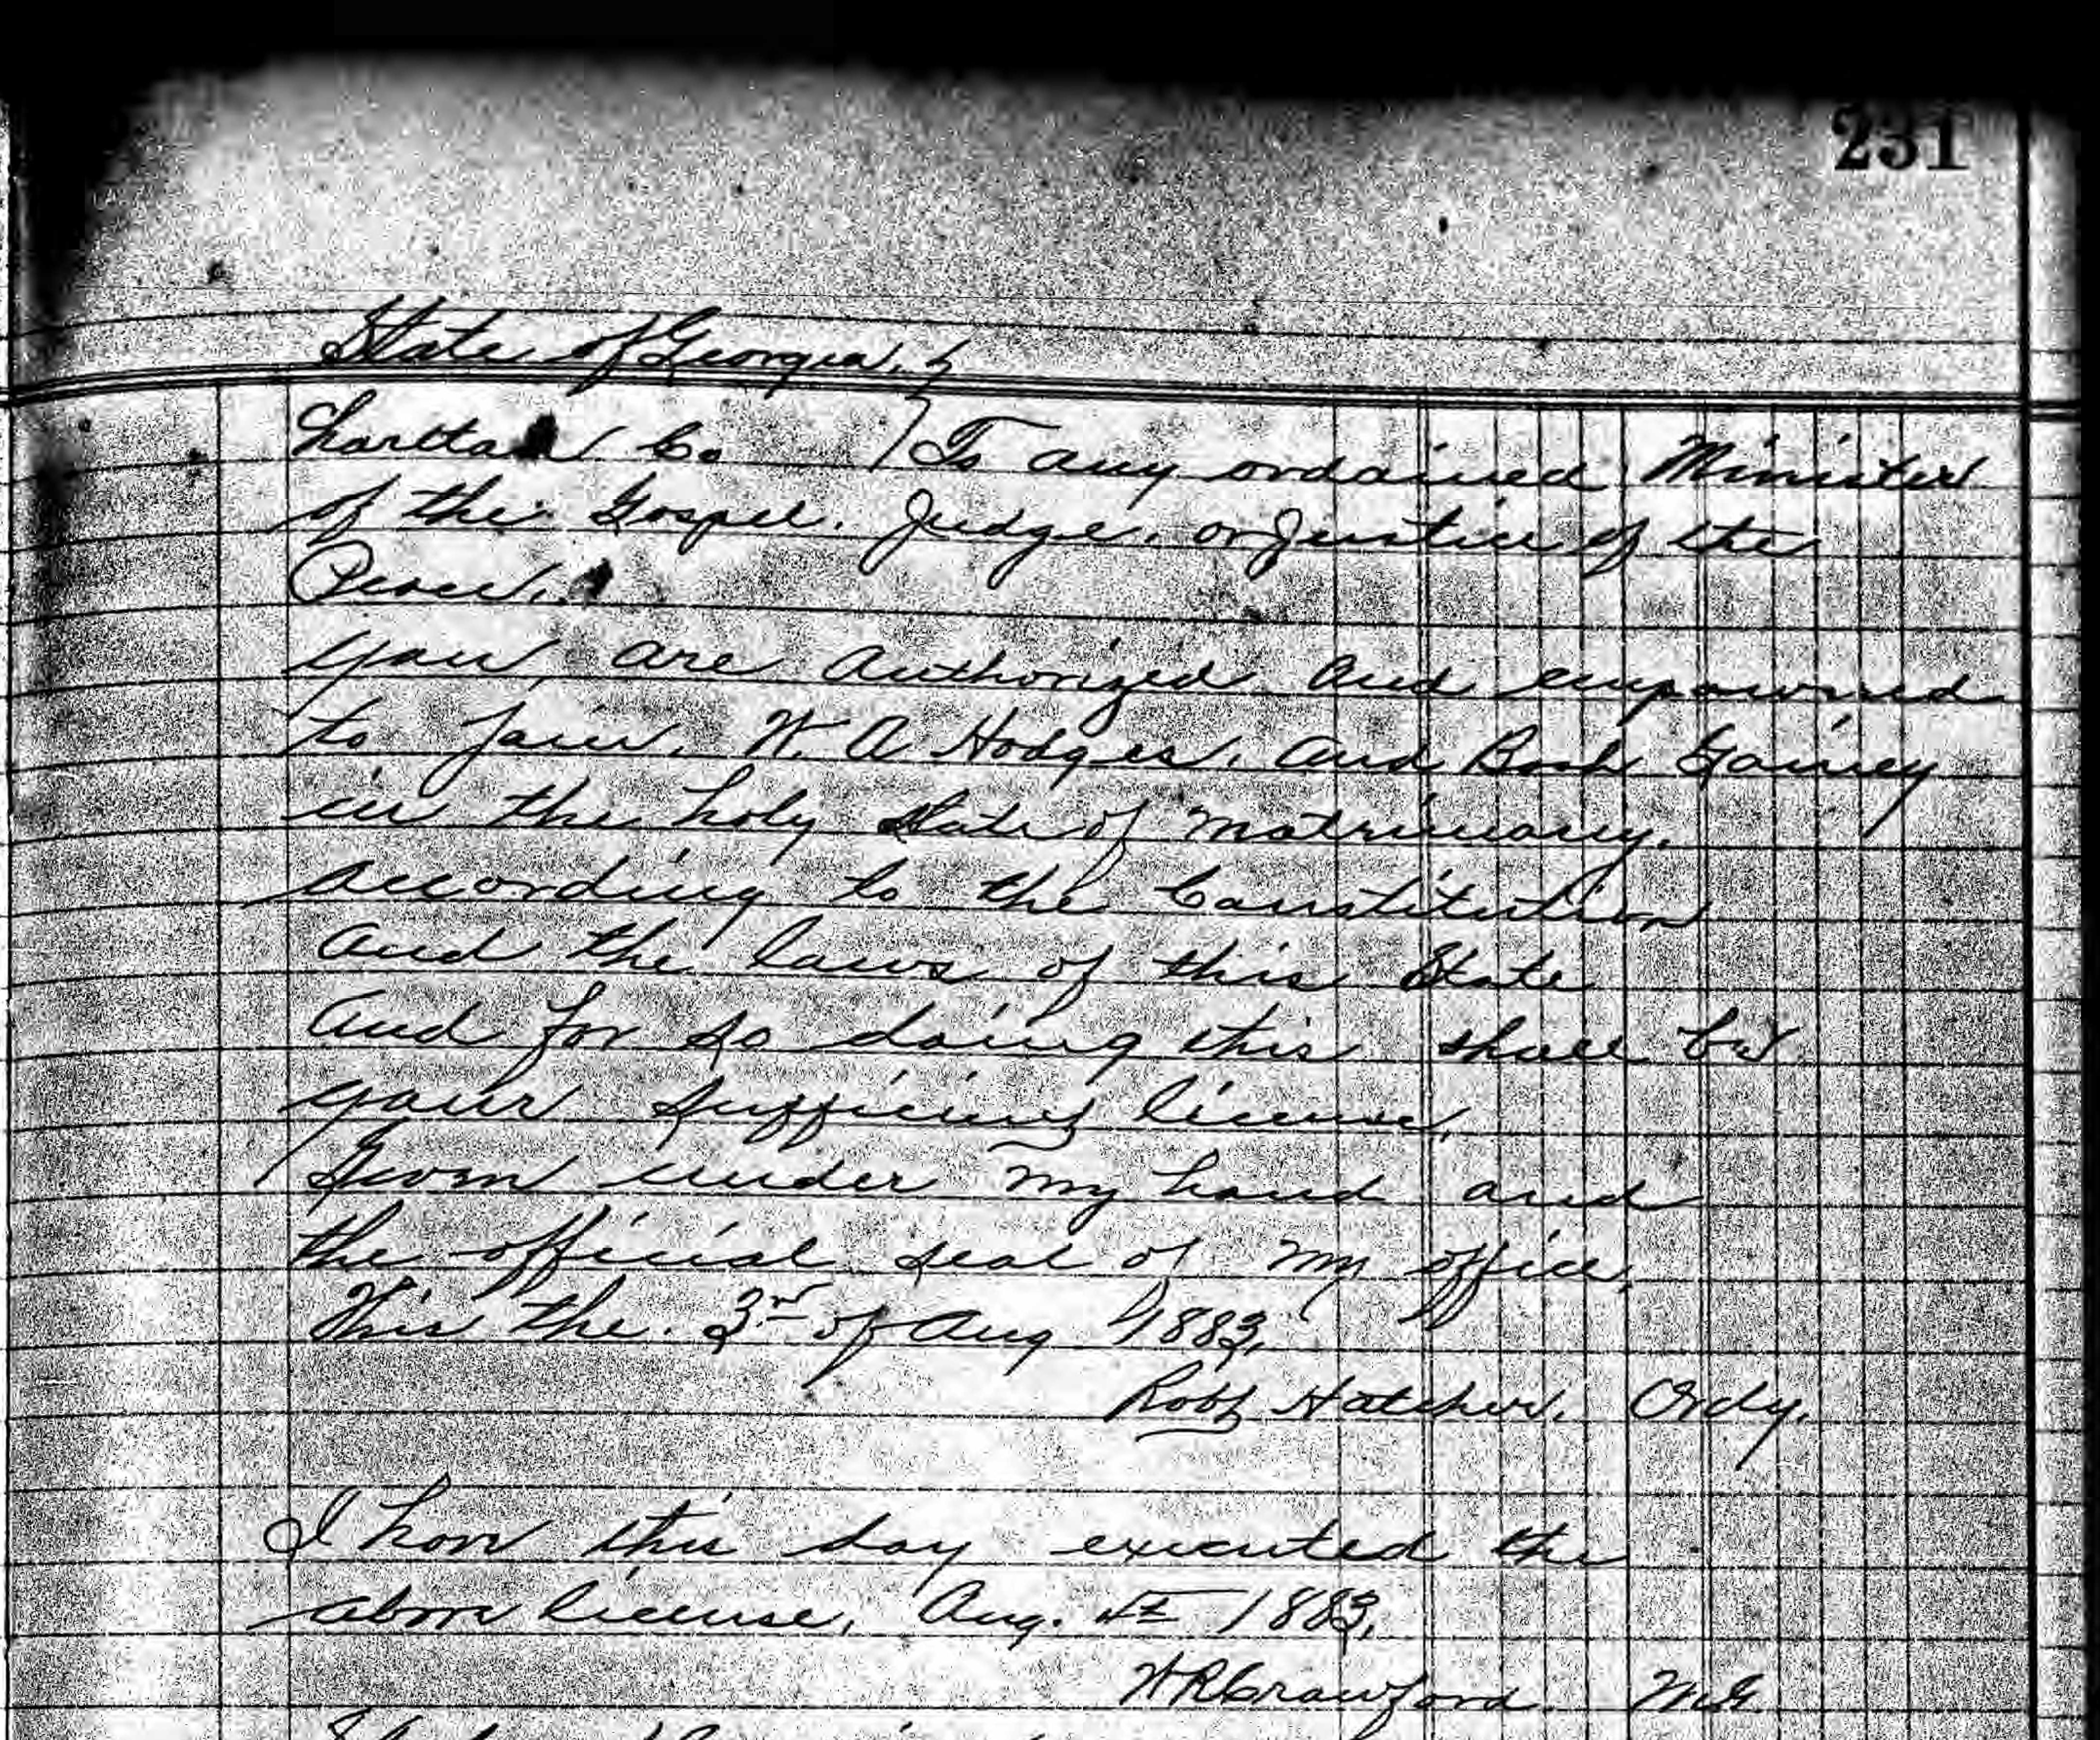 231
State of Georgia,
Charlton Co To any ordained Minister
of the Gospel. Judge, or Justice of the
Peace.
you are authorized and empowered
to join. W. A Hodges. and Gainey
in the holy state of matrimony.
according to the Constitution
and the laws of this State
and for so doing this shall be
your license.
Given under my hand and
the official seal of my office,
This the 3rd of Aug 1883.
Robt Hatcher. Ordy.
I have this day executed the
above license, Aug. 1883.
W R Crawford M.G